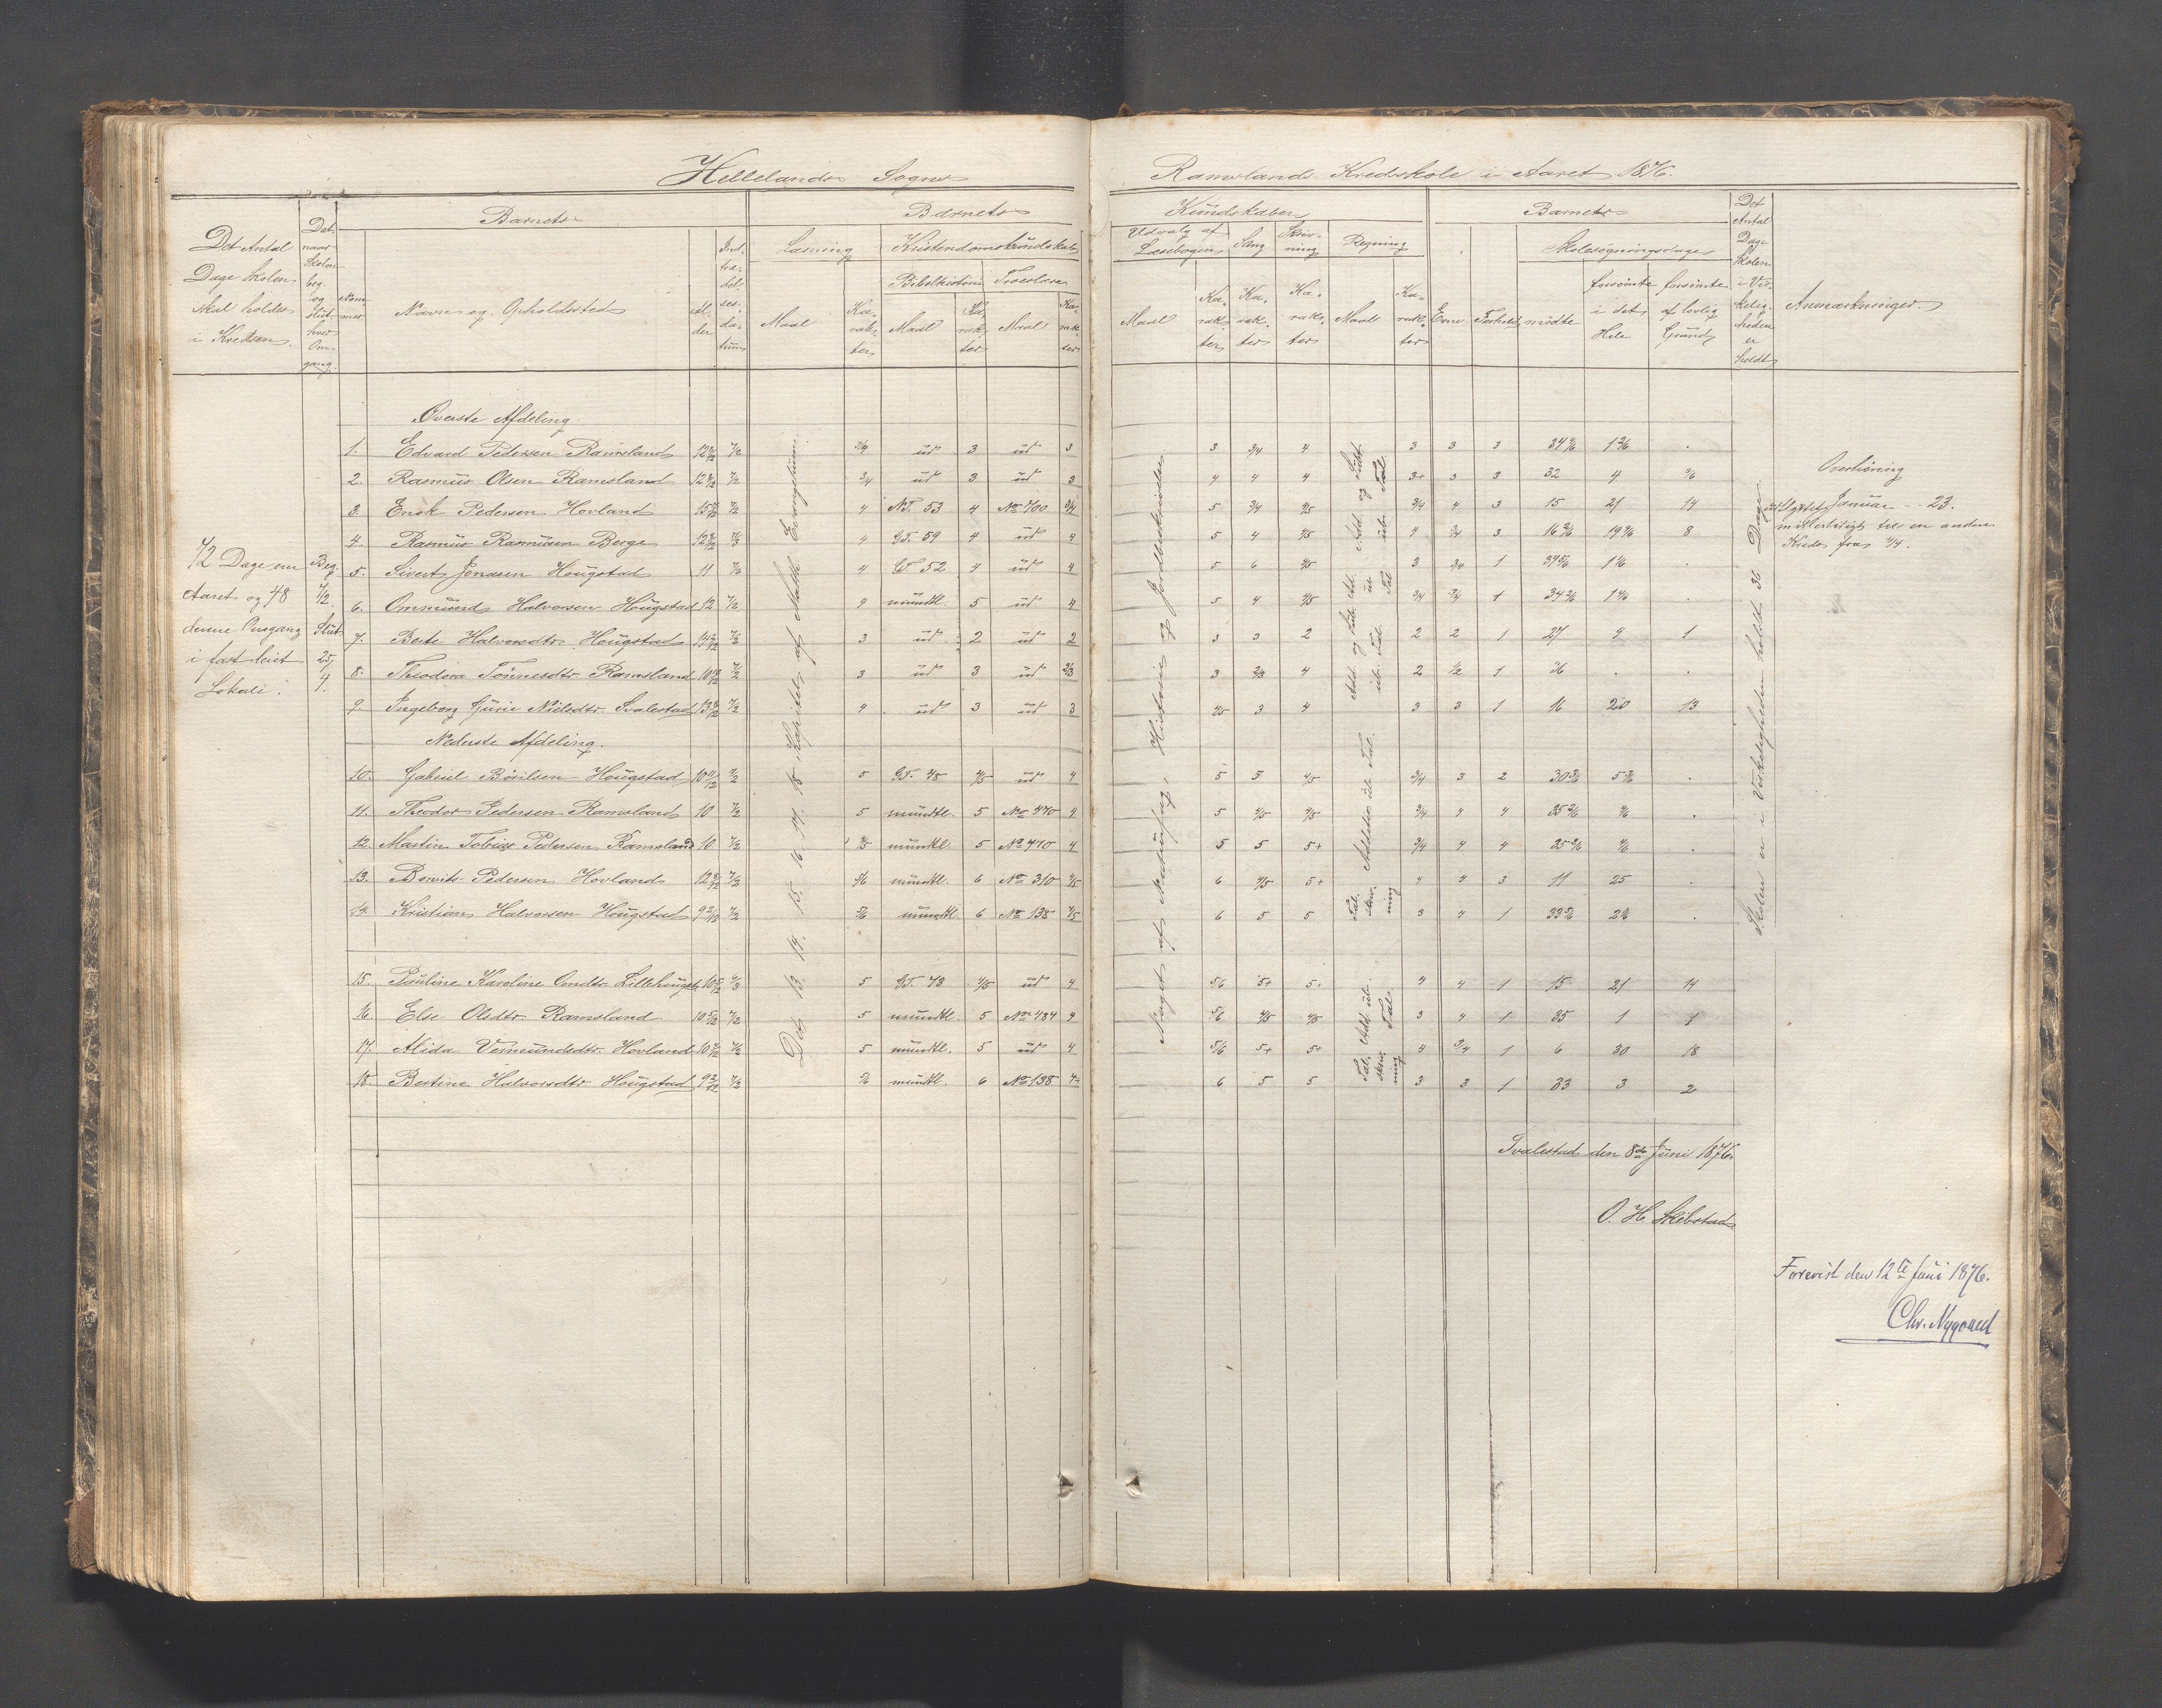 Hellelands Sogns
Ramslands Kredsskole i Aaret 1876.
Det Antal Dage Skolen skal holdes i Kredsen.
Dat. naar Skolen beg. og slut. hver Omgang.
Barnets
Nummer
Navn og Opholdssted
Alder
Indtrædelsesdatum
Barnets
Læsning
Maal
Karakter
Kristendomskundskab
Bibelhistorie
Troeslære
Maal
Karakter
Maal
Karakter
Kundskaber
Udvalg af Læsebogen
Sang
Skrivning
Regning
Maal
Karakter
Karakter
Karakter
Maal
Karakter
Barnets
Evne
Forhold
Skolesøgningsdage
mødte
forsømte i det Hele
forsømte af lovlig Grund
Det Antal Dage Skolen i Virkeligheden er holdt
Anmærkninger.
72 Dage om
Aaret og 48
denne Omgang
i fast leiet
Lokale.
Beg.
7/2
Slut
25/4.
Det 13. 14. 15. 16. 17. 18 Kapitel af Matth. Evangelium.
Noget af Naturfag, Historie og Jordbeskrivelse
Skolen er i Virkeligheden holdt 36 Dage
Øverste Afdeling.
1. Edvard Pedersen Ramsland 7/2 3/4 ud 3 ud 3 3 3/4 4 3 3 3
2. Rasmus Olsen Ramsland 7/2 3/4 ud 3 ud 3 4 4 4 3+ 3 3 32 4
3. Enok Pedersen Hovland 7/2 4 N.T. 53 4 No 700 3/4 5 3/4 4/5 3/4 4 3 15 21 14
4. Rasmus Rasmusen Berge 4 G.T. 59 4 ud 4 5 4 4/5 4 3/4 3 8
5. Sivert Jonasen Hougstad 11 7/2 4 52 4 ud 4 5 6 4/5 3 3/4 1
6. Ommund Halvorsen Hougstad 12 7/2 4 mundtl. 5 ud 4 5 4 4/5 3/4 3/4 1
7. Berte Halvorsdtr. Hougstad 7/2 3 ud 2 ud 2 3 3 2 2 2 1 27 9 1
8. Theodora Tønnesdtr. Ramsland 7/2 3 ud 3 ud 2/3 3 2/3 4 2 1/2 1 36 . .
9. Ingeborg Gurie Nielsdtr. Svalestad 7/2 4 ud 3 ud 3 4/5 3 4 3 3 1 16 20 13
Nederste Afdeling.
10. Gabriel Børilsen Hougstad 7/2 5 G.T. 48 4/5 ud 4 5 5 4/5 3/4 3 2
11. Theodor Pedersen Ramsland 10 7/2 5 mundtl. 5 No 470 4 5 4/5 4/5 3/4 4 4
12. Martin Tobias Pedersen Ramsland 10 7/2 mundtl. 5 No 470 4 5 5 5+ 3/4 4 4
13. Pedersen Hovland 7/2 5/6 mundtl. 6 No 310 4/5 6 4/5 5+ 4 4 3 11 25
14. Kristian Halvorsen Hougstad 7/2 5/6 mundtl. 6 No 138 4/5 6 5 5 3 4 1
15. Pauline Karoline Omdtr. Lillehougst. 5 G.T. 43 4/5 ud 4 5/6 5+ 5+ 4 4 1 15 21 14
16. Else Olsdtr. Ramsland 10 5/12 7/2 5 mundtl. 5 No 484 4 5/6 4/5 4/5 3 4 1 35 1 1
17. Alida Vermundsdtr. Hovland 5 mundtl. 5 ud 4 5/6 5+ 5+ 4 3/4 1 6 30 18
18. Bertine Halvorsdtr. Hougstad 7/2 5/6 mundtl. 6 No 138 6 5 5 3 3 1 33 3 2
Overhøring
Januar - 23.
til en anden
Kreds fra
Svalestad den 8de Juni 1876.
O. H. Skibstad
Forevist den 12te Juni 1876.
Chr. Nygaard